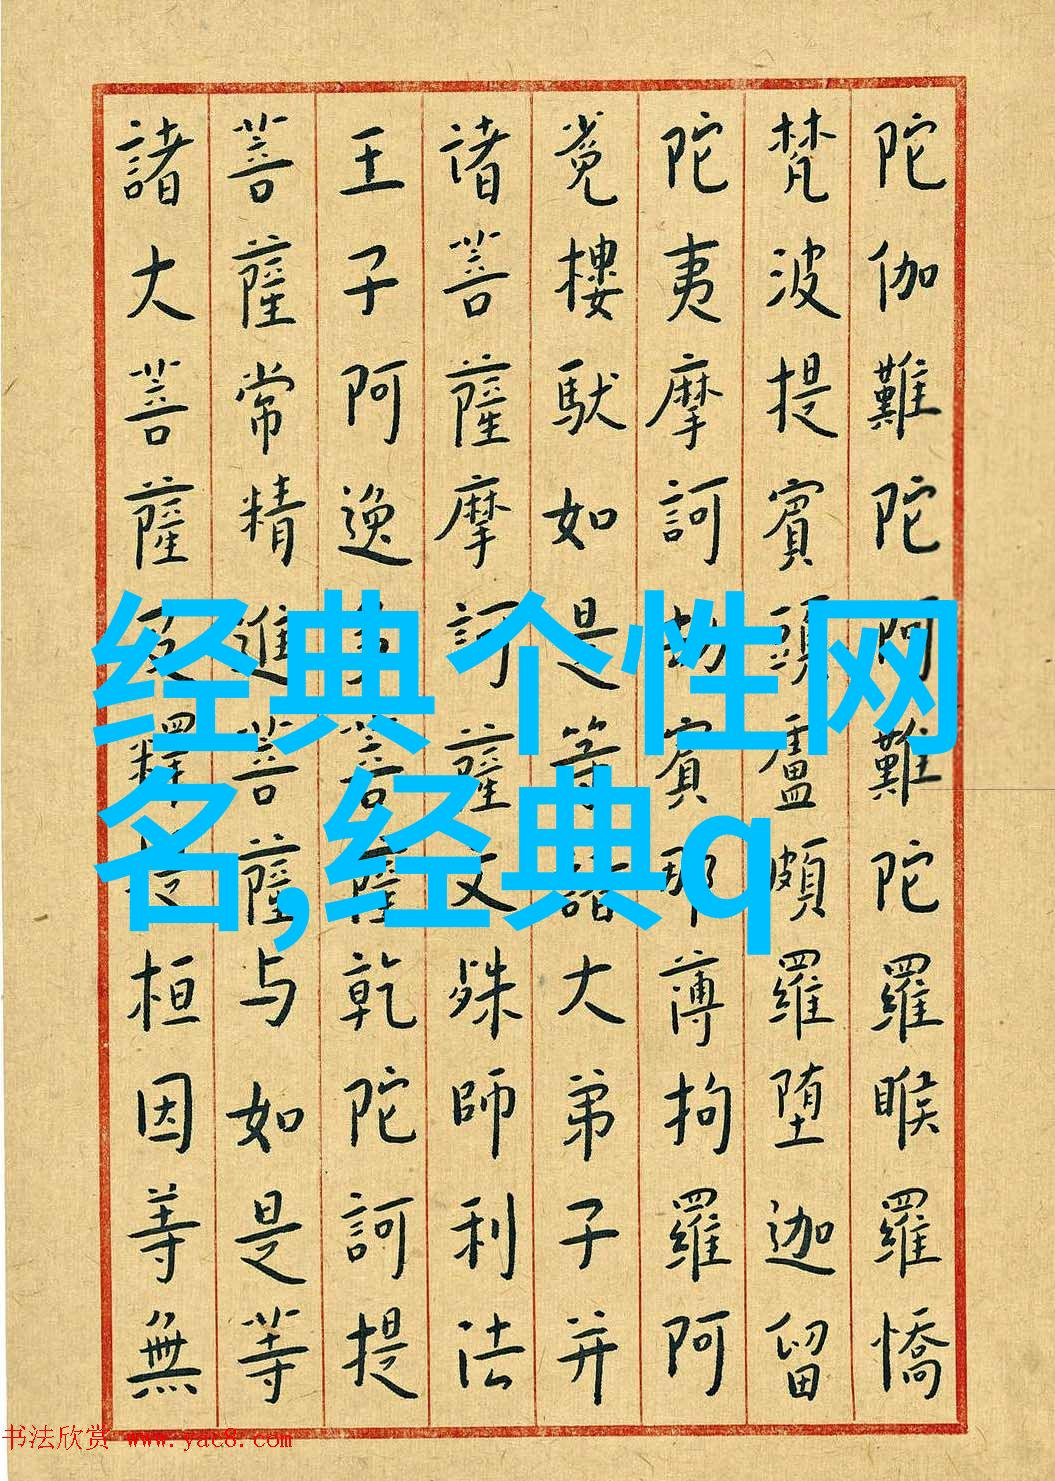 陀伽難陀阿難陀羅睺羅憍
梵波提賓頭盧頗羅堕迦留
陀夷摩訶劫賓那薄拘羅阿
㝹樓馱如是等諸大弟子并
诸菩薩摩訶薩文殊師利法
王子阿逸多菩薩乾陀訶提
菩薩常精進菩薩与如是等
諸大菩薩及釋提桓因等無
经典个性网
名,经典q
书法欣赏 www.yac8.com